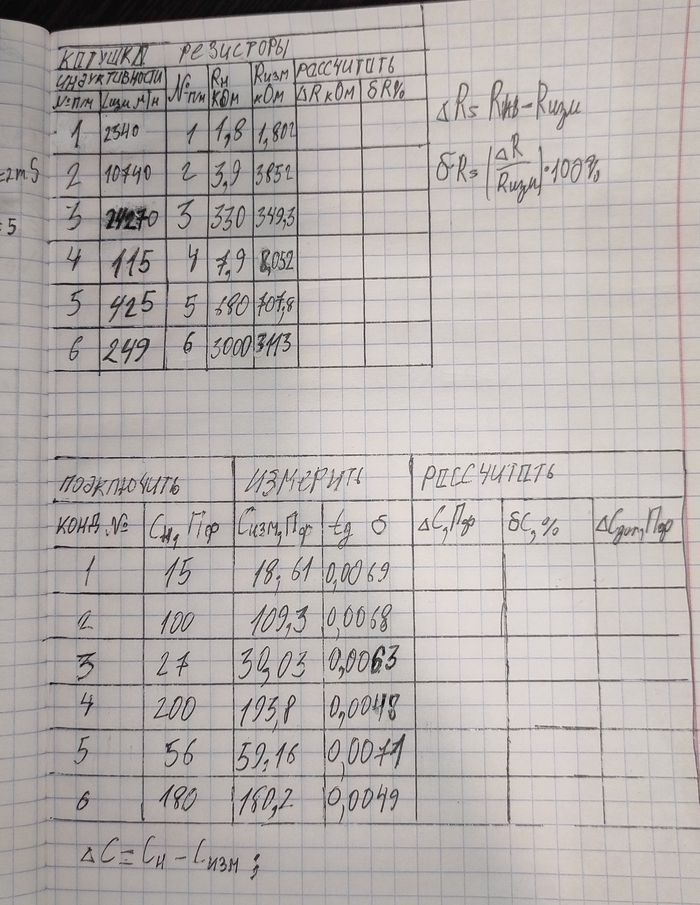 КАТУШКА РЕЗИСТОРЫ
ИНДУКТИВНОСТИ №п/п Rн кОм Rизм кОм РАССЧИТАТЬ
№п/п Lизм мГн ΔR кОм δR%
1 2340 1 1,8 1,802
2 10740 2 3,9 3852
3 24270 3 330 349,3
4 115 4 7,9 8,052
5 425 5 680 707,8
6 249 6 3000 3113
ΔR = Rнв - Rизм
δR = (ΔR/Rизм)·100%
=2mS
=5
ПОДКЛЮЧИТЬ ИЗМЕРИТЬ РАССЧИТАТЬ
КОНД № Cн, Пф Cизм, Пф tg δ ΔC, Пф δC, % ΔCдоп, Пф
1 15 18,61 0,0069
2 100 109,3 0,0068
3 27 30,03 0,0063
4 200 193,8 0,0048
5 56 59,16 0,0071
6 180 180,2 0,0049
ΔC = Cн - Cизм ;